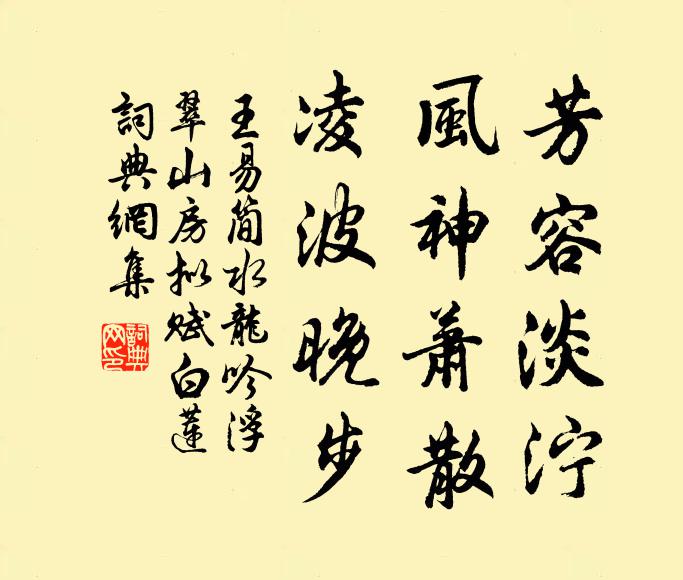 芳容淡泞
風神蕭散
凌波晚步
王易簡水龍吟浮
翠山房拟賦白蓮
詞典網集
詞典
网印